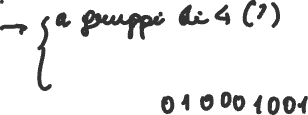 → { a gruppi di 4 (?)
010001001